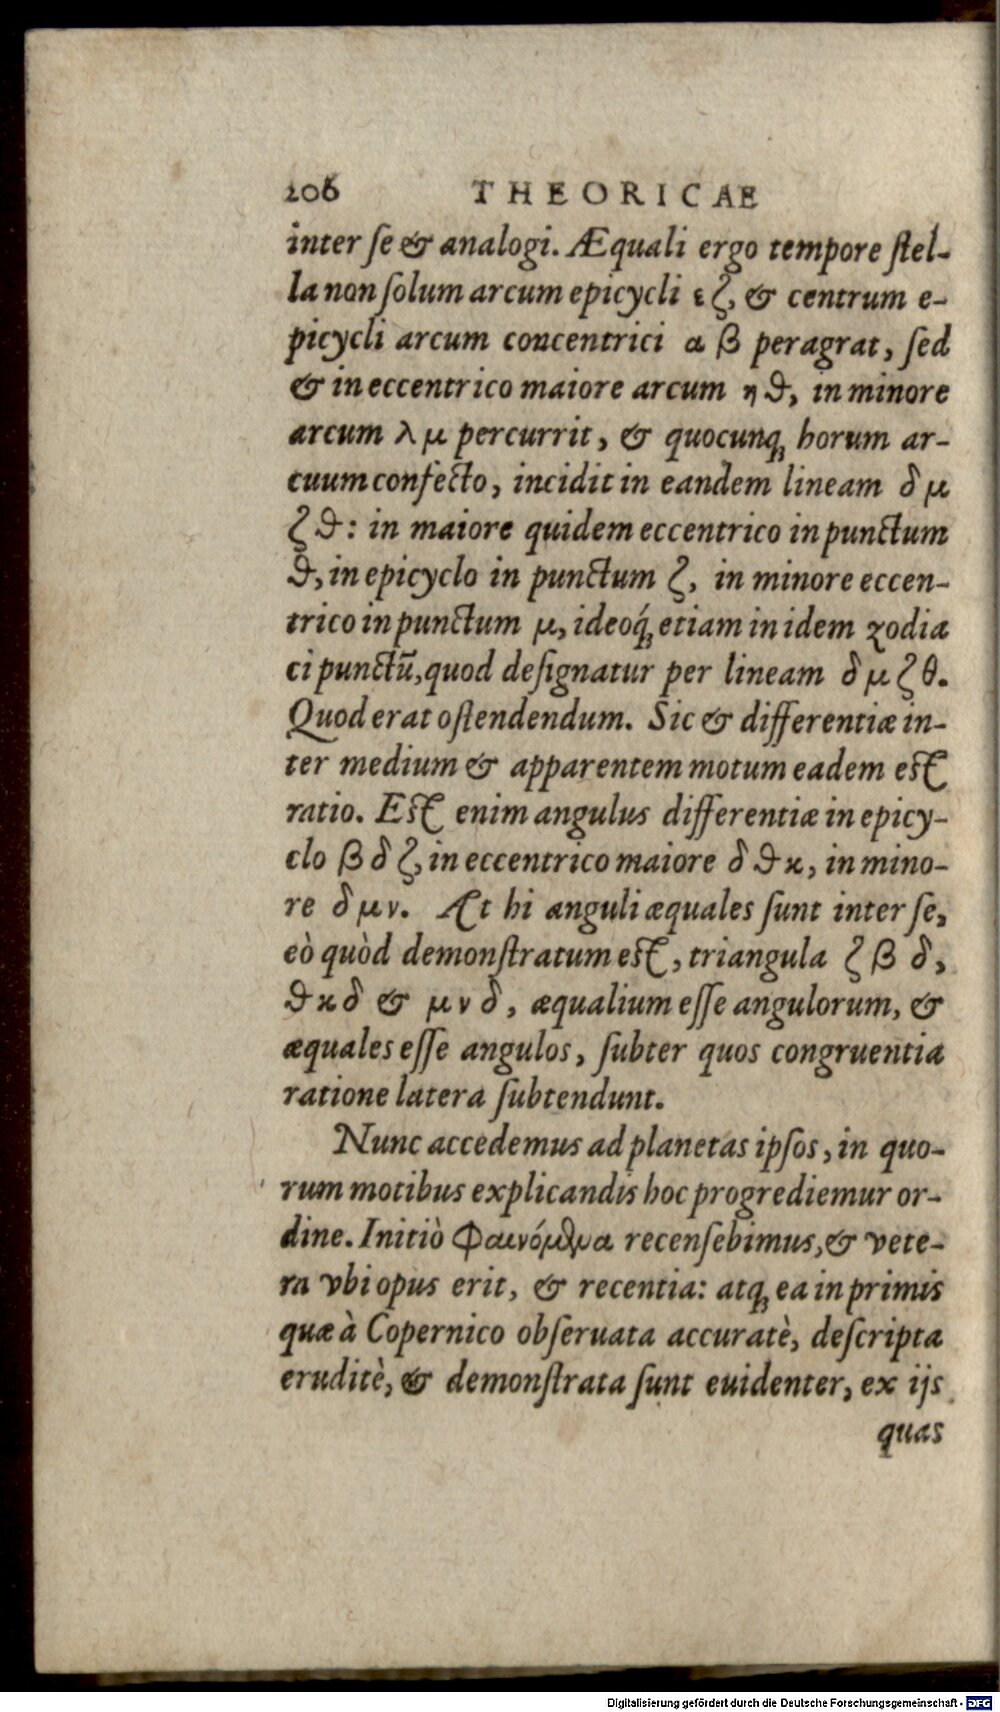 206 THEORICAE
inter ſe & analogi. Æquali ergo tempore ſtel-
la non ſolum arcum epicycli ε ζ, & centrum e-
picycli arcum concentrici α β peragrat, ſed
& in eccentrico maiore arcum η ϑ, in minore
arcum λ μ percurrit, & quocunq; horum ar-
cuum confecto, incidit in eandem lineam δ μ
ζ ϑ: in maiore quidem eccentrico in punctum
ϑ, in epicyclo in punctum ζ, in minore eccen-
trico in punctum μ, ideoq́; etiam in idem zodia
ci punctū, quod deſignatur per lineam δ μ ζ θ.
Quod erat oſtendendum. Sic & differentiæ in-
ter medium & apparentem motum eadem eſt
ratio. Eſt enim angulus differentiæ in epicy-
clo β δ ζ, in eccentrico maiore δ ϑ κ, in mino-
re δ μ ν. At hi anguli æquales ſunt inter ſe,
eò quòd demonſtratum eſt, triangula ζ β δ,
ϑ κ δ & μ ν δ, æqualium eſſe angulorum, &
æquales eſſe angulos, ſubter quos congruentia
ratione latera ſubtendunt.
Nunc accedemus ad planetas ipſos, in quo-
rum motibus explicandis hoc progrediemur or-
dine. Initiò Φαινόμενα recenſebimus, & vete-
ra vbi opus erit, & recentia: atq; ea in primis
quæ à Copernico obſeruata accuratè, deſcripta
eruditè, & demonſtrata ſunt euidenter, ex ijs
quas
Digitalisierung gefördert durch die Deutsche Forschungsgemeinschaft - DFG